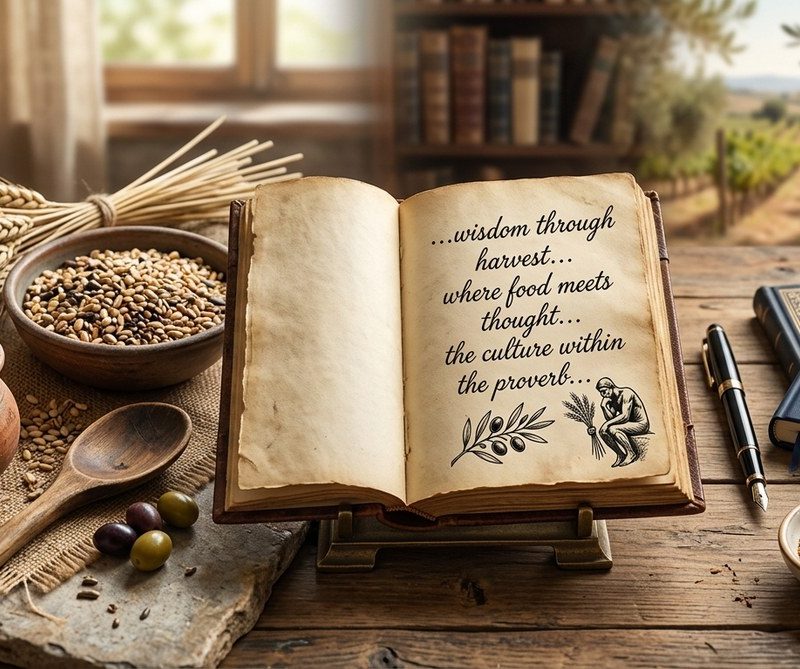 ...wisdom through
harvest...
where food meets
thought...
the culture within
the proverb...